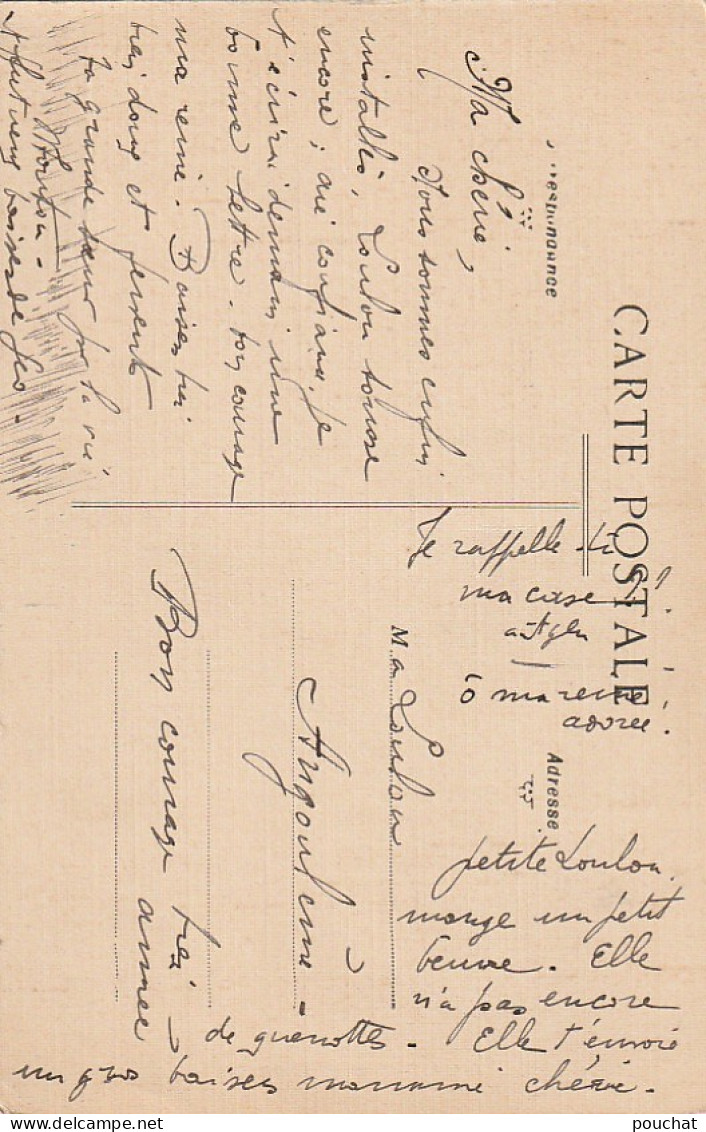 CARTE POSTALE
Correspondance
Adresse
Ma chérie,
Nous sommes enfin
installés, Loulou tousse
encore; ai confiance. Je
t'écrirai demain une
bonne lettre. Bon courage
ma reine. Baisers très
très doux et fervents
Ta grande
baisers de Géo.
Je rappelle-t-
ma case
ô ma reine
adorée!
Ma Loulou
Angoulême -
Bon courage très
aimée
petite Loulou
mange un petit
beurre. Elle
n'a pas encore
de quenottes. Elle t'envoie
un gros baisers maman chérie.
pouchat